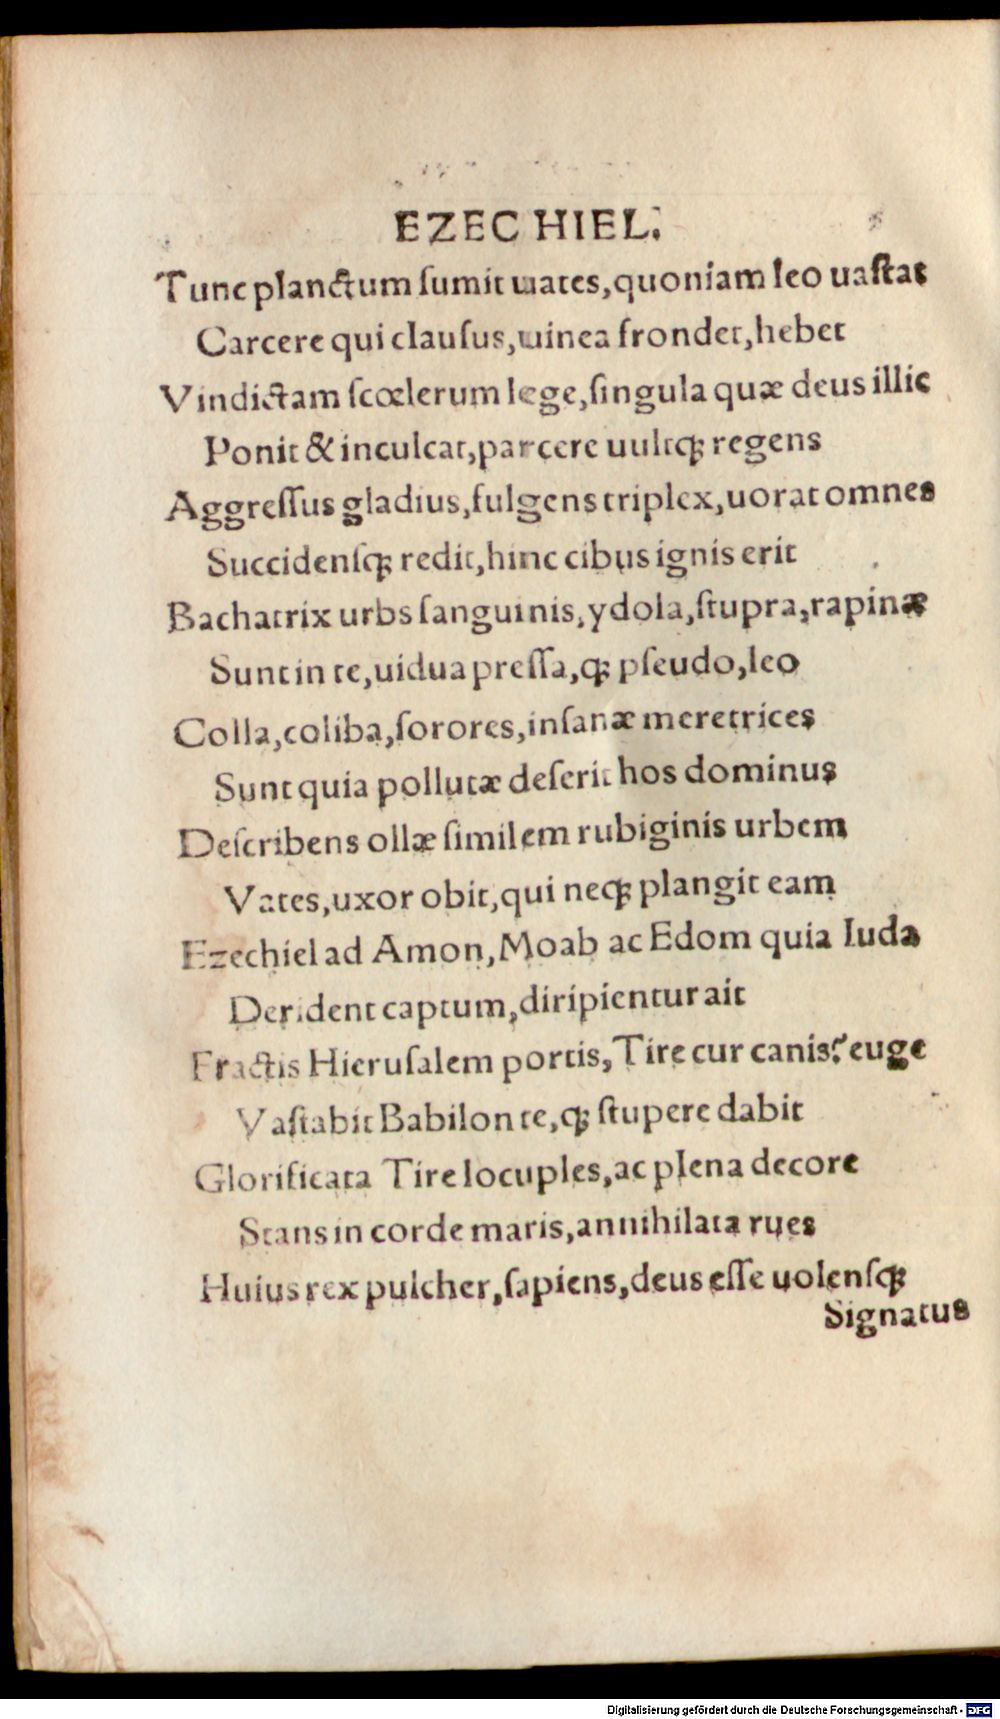 EZECHIEL.
Tunc planctum ſumit uates,quoniam leo uaſtat
Carcere qui clauſus,uinea frondet,hebet
Vindictam ſcœlerum lege,ſingula quæ deus illic
Ponit & inculcat,parcere uultq; regens
Aggreſſus gladius,fulgens triplex,uorat omnes
Succidenſq; redit,hinc cibus ignis erit
Bachatrix urbs ſanguinis,ydola,ſtupra,rapinæ
Sunt in te,uidua preſſa,q; pſeudo,leo
Colla,coliba,ſorores,inſanæ meretrices
Sunt quia pollutæ deſerit hos dominus
Deſcribens ollæ ſimilem rubiginis urbem
Vates,uxor obit,qui neq; plangit eam
Ezechiel ad Amon,Moab ac Edom quia Iuda
Derident captum,diripientur ait
Fractis Hieruſalem portis,Tire cur canis?euge
Vaſtabit Babilon te,q; ſtupere dabit
Glorificata Tire locuples,ac plena decore
Stans in corde maris,annihilata rues
Huius rex pulcher,ſapiens,deus eſſe uolenſq;
Signatus
Digitalisierung gefördert durch die Deutsche Forschungsgemeinschaft - DFG